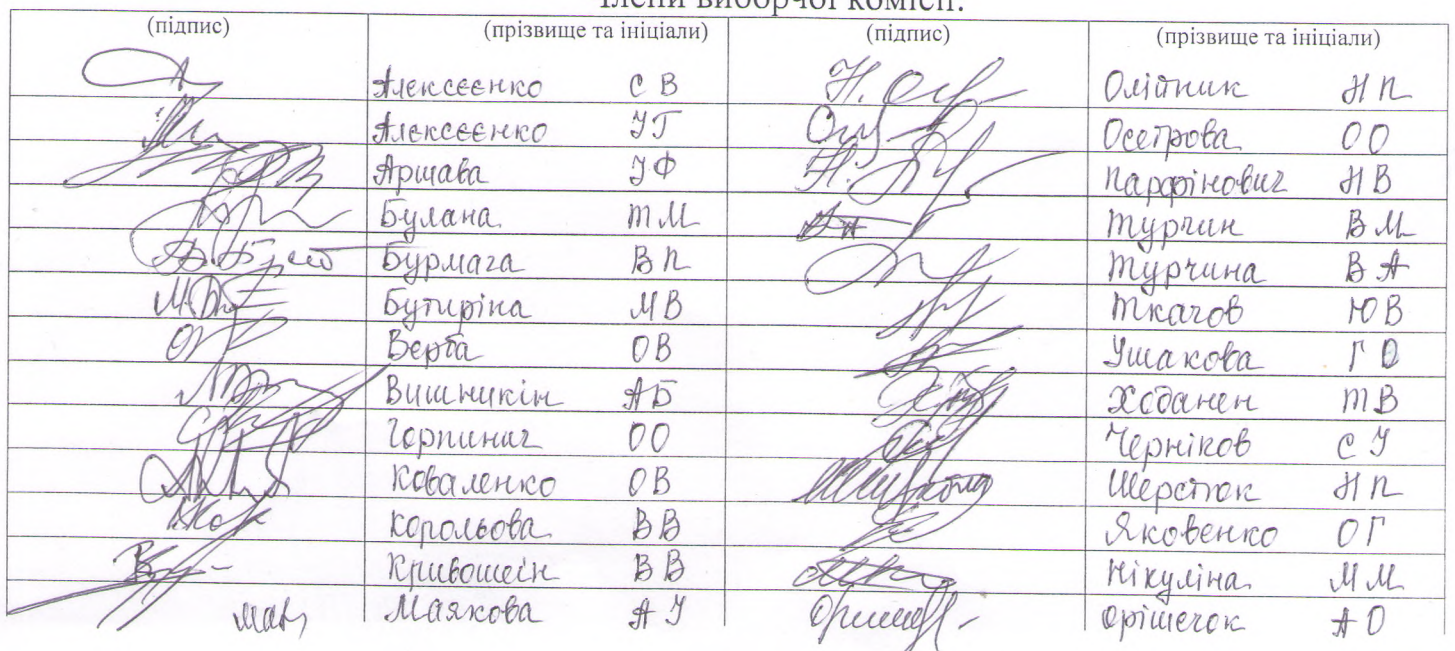 Члени виборчої комісії:
(підпис) (прізвище та ініціали) (підпис) (прізвище та ініціали)
Алексеєнко С В Н. Олійник Н П
Алексеєнко У Г Осетрова О О
Аршава У Ф Парфінович Н В
Булана Т М Турчин В М
Бурмага В П Турчина В А
Бутиріна М В Ткачов Ю В
Верба О В Ушакова Г О
Вишникін А Б Ходанен Т В
Горпинич О О Черніков С У
Коваленко О В Шерстюк Н П
Корольова В В Яковенко О Г
Кривошеін В В Нікуліна М М
Маякова А У Орішечок А О